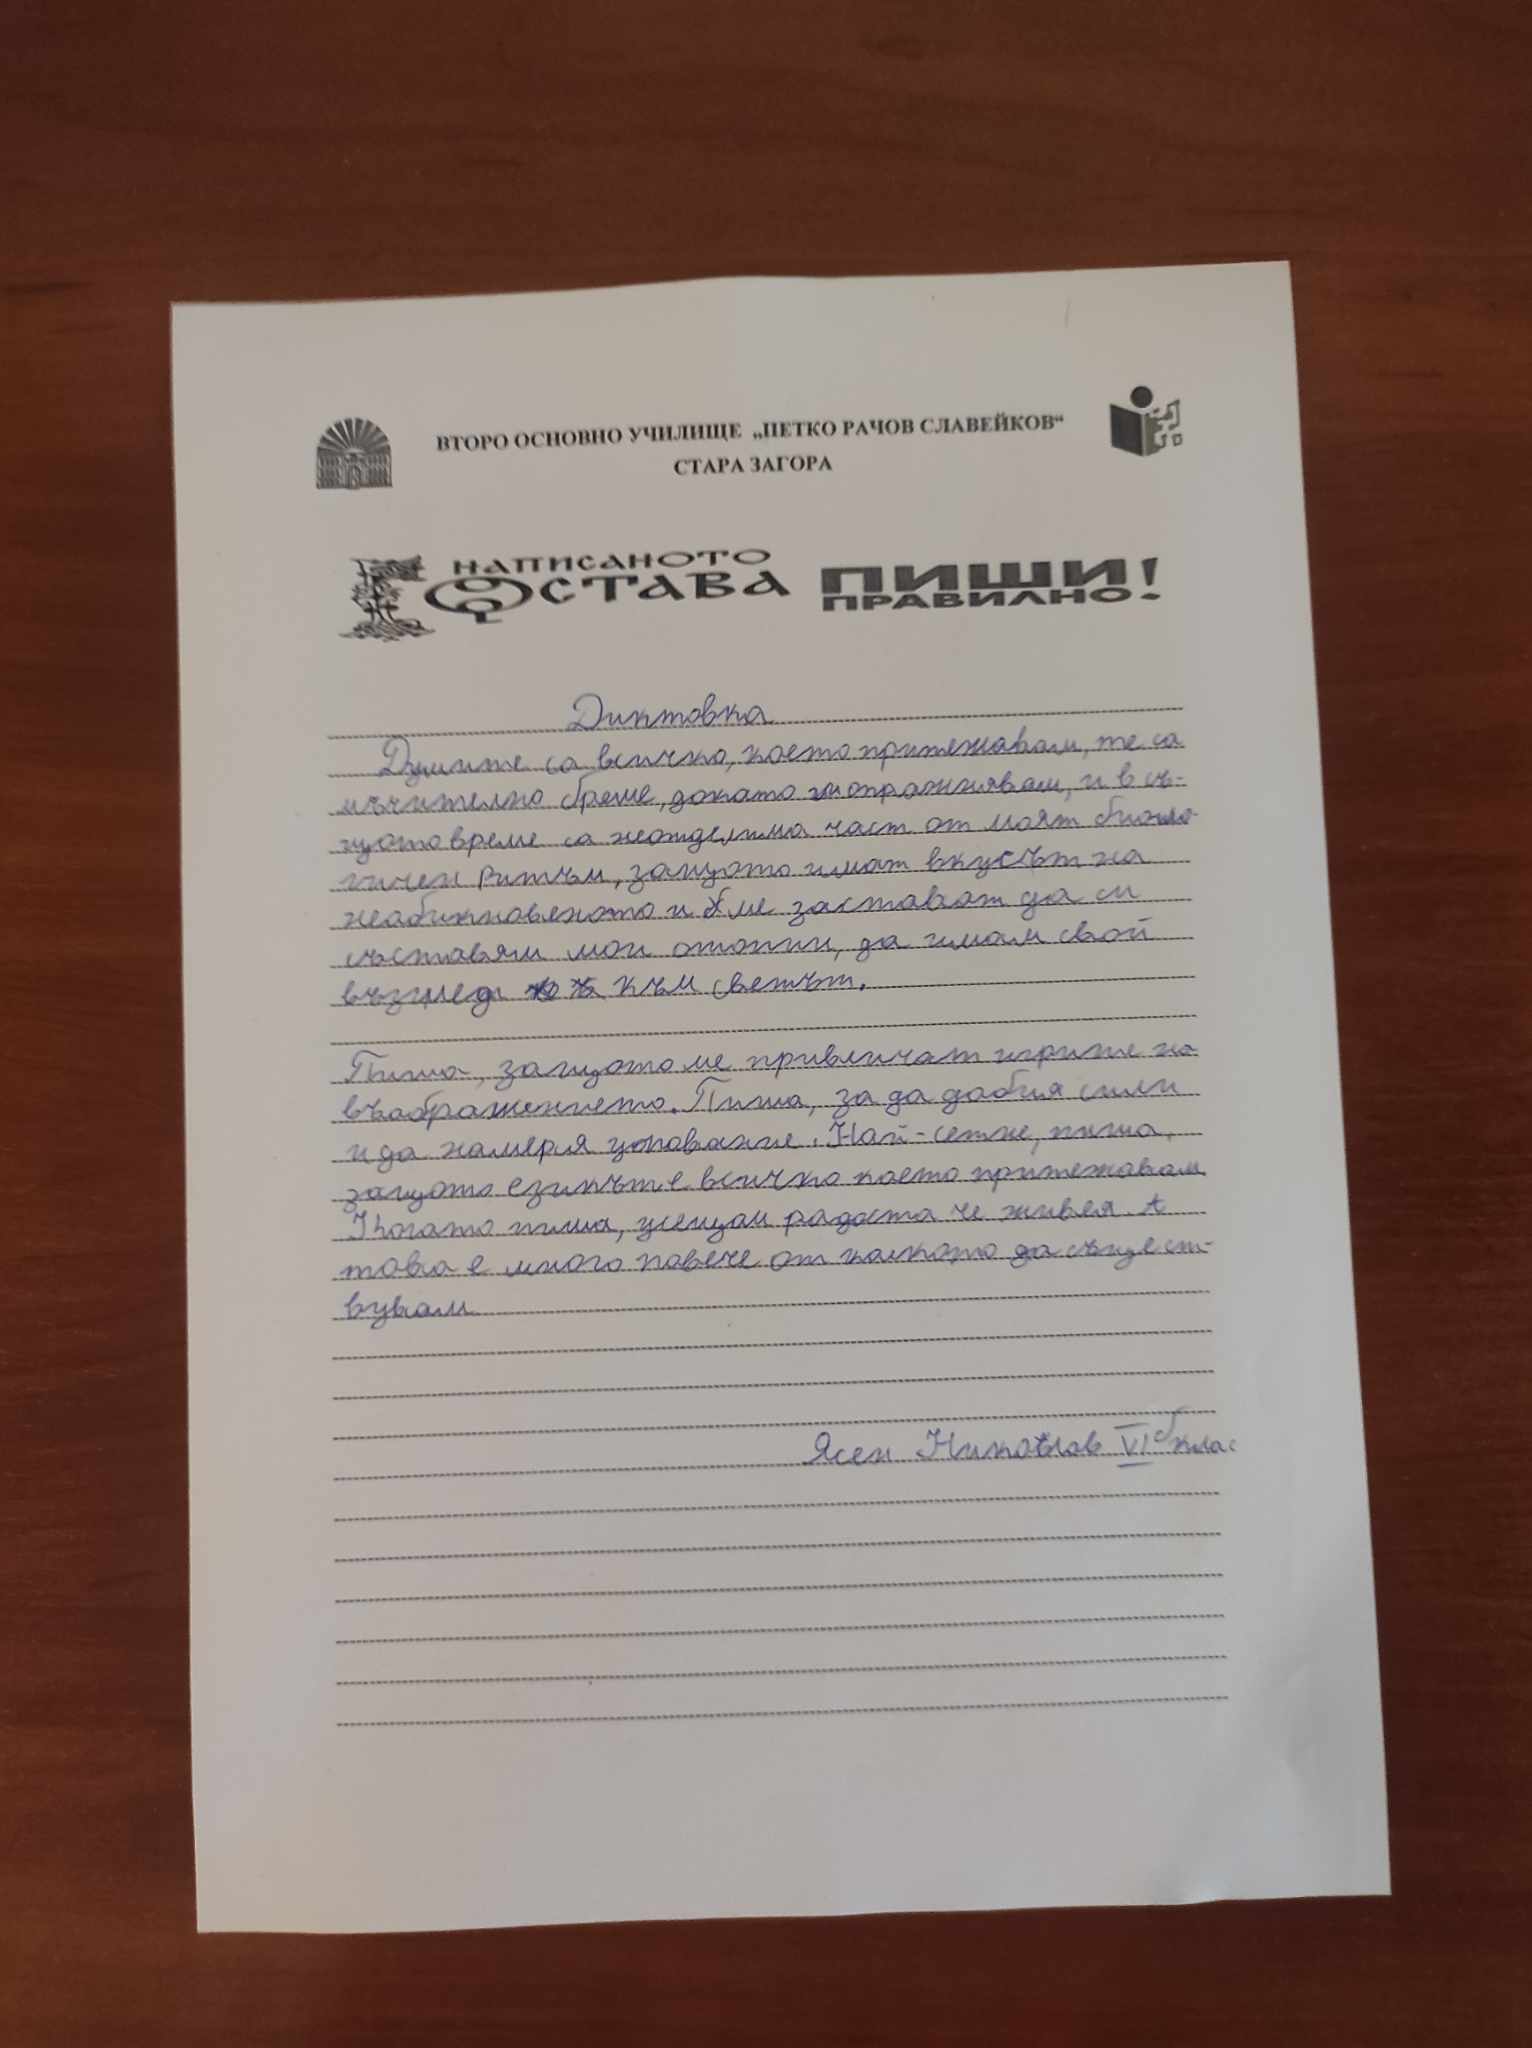 ВТОРО ОСНОВНО УЧИЛИЩЕ „ПЕТКО РАЧОВ СЛАВЕЙКОВ“
СТАРА ЗАГОРА
НАПИСАНОТО
ОСТАВА
ПИШИ
ПРАВИЛНО!
Диктовка
Думите са всичко, което притежавам, те са
мъчително бреме, докато ги опразнявам, и в съ-
щото време са неотделима част от моят биоло-
гичен ритъм, защото имат вкусът на
необикновеното и ме заставят да си
съставям мои отопии, да имам свой
възглед към светът.
Пиша, защото ме привличат игрите на
въображението. Пиша, за да добия сили
и да намеря упование. Най-сетне, пиша,
защото езикът е всичко което притежавам
Когато пиша, усещам радоста че живея. А
това е много повече от колкото да същест-
вувам
Ясен Николов VI б клас